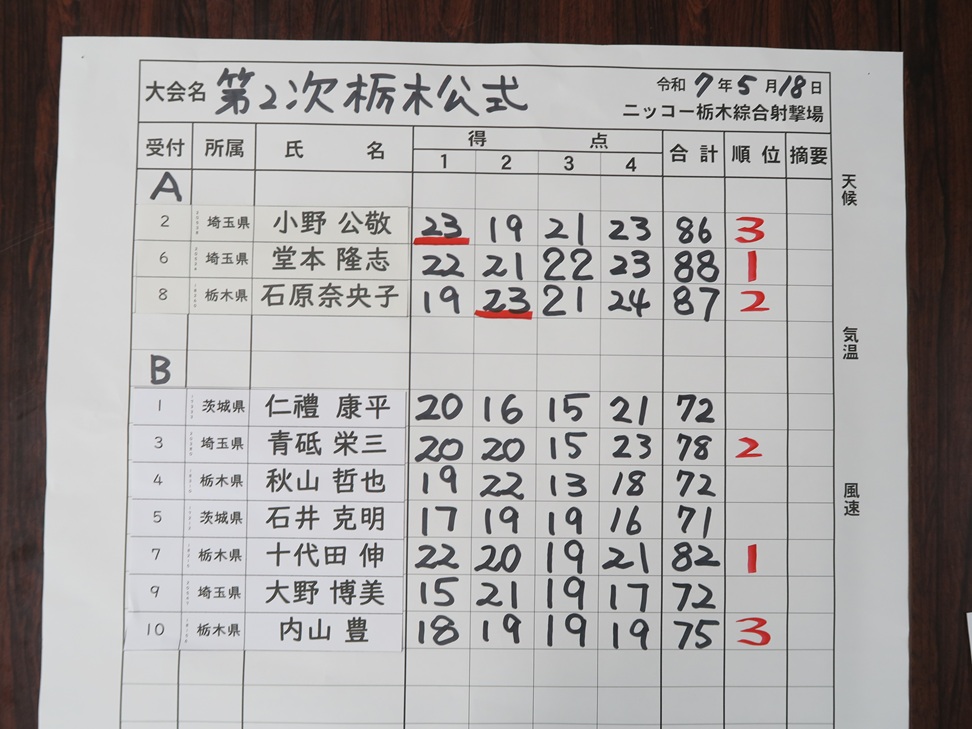 大会名 第2次栃木公式 令和 7 年 5 月 18 日
ニッコー栃木綜合射撃場
受付 所属 氏 名 得 点 合 計 順 位 摘要
1 2 3 4
A
2 埼玉県 小野 公敬 23 19 21 23 86 3
6 埼玉県 堂本 隆志 22 21 22 23 88 1
8 栃木県 石原奈央子 19 23 21 24 87 2
B
1 茨城県 仁禮 康平 20 16 15 21 72
3 埼玉県 青砥 栄三 20 20 15 23 78 2
4 栃木県 秋山 哲也 19 22 13 18 72
5 茨城県 石井 克明 17 19 19 16 71
7 栃木県 十代田 伸 22 20 19 21 82 1
9 埼玉県 大野 博美 15 21 19 17 72
10 栃木県 内山 豊 18 19 19 19 75 3
天候
気温
風速